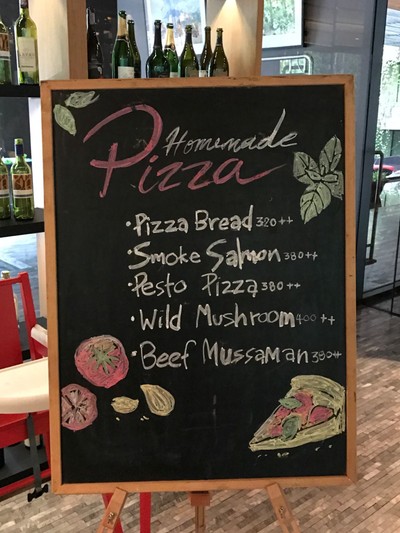 Homemade
Pizza
· Pizza Bread 320++
· Smoke Salmon 380++
· Pesto Pizza 380++
· Wild Mushroom 400 ++
· Beef Mussaman 380++